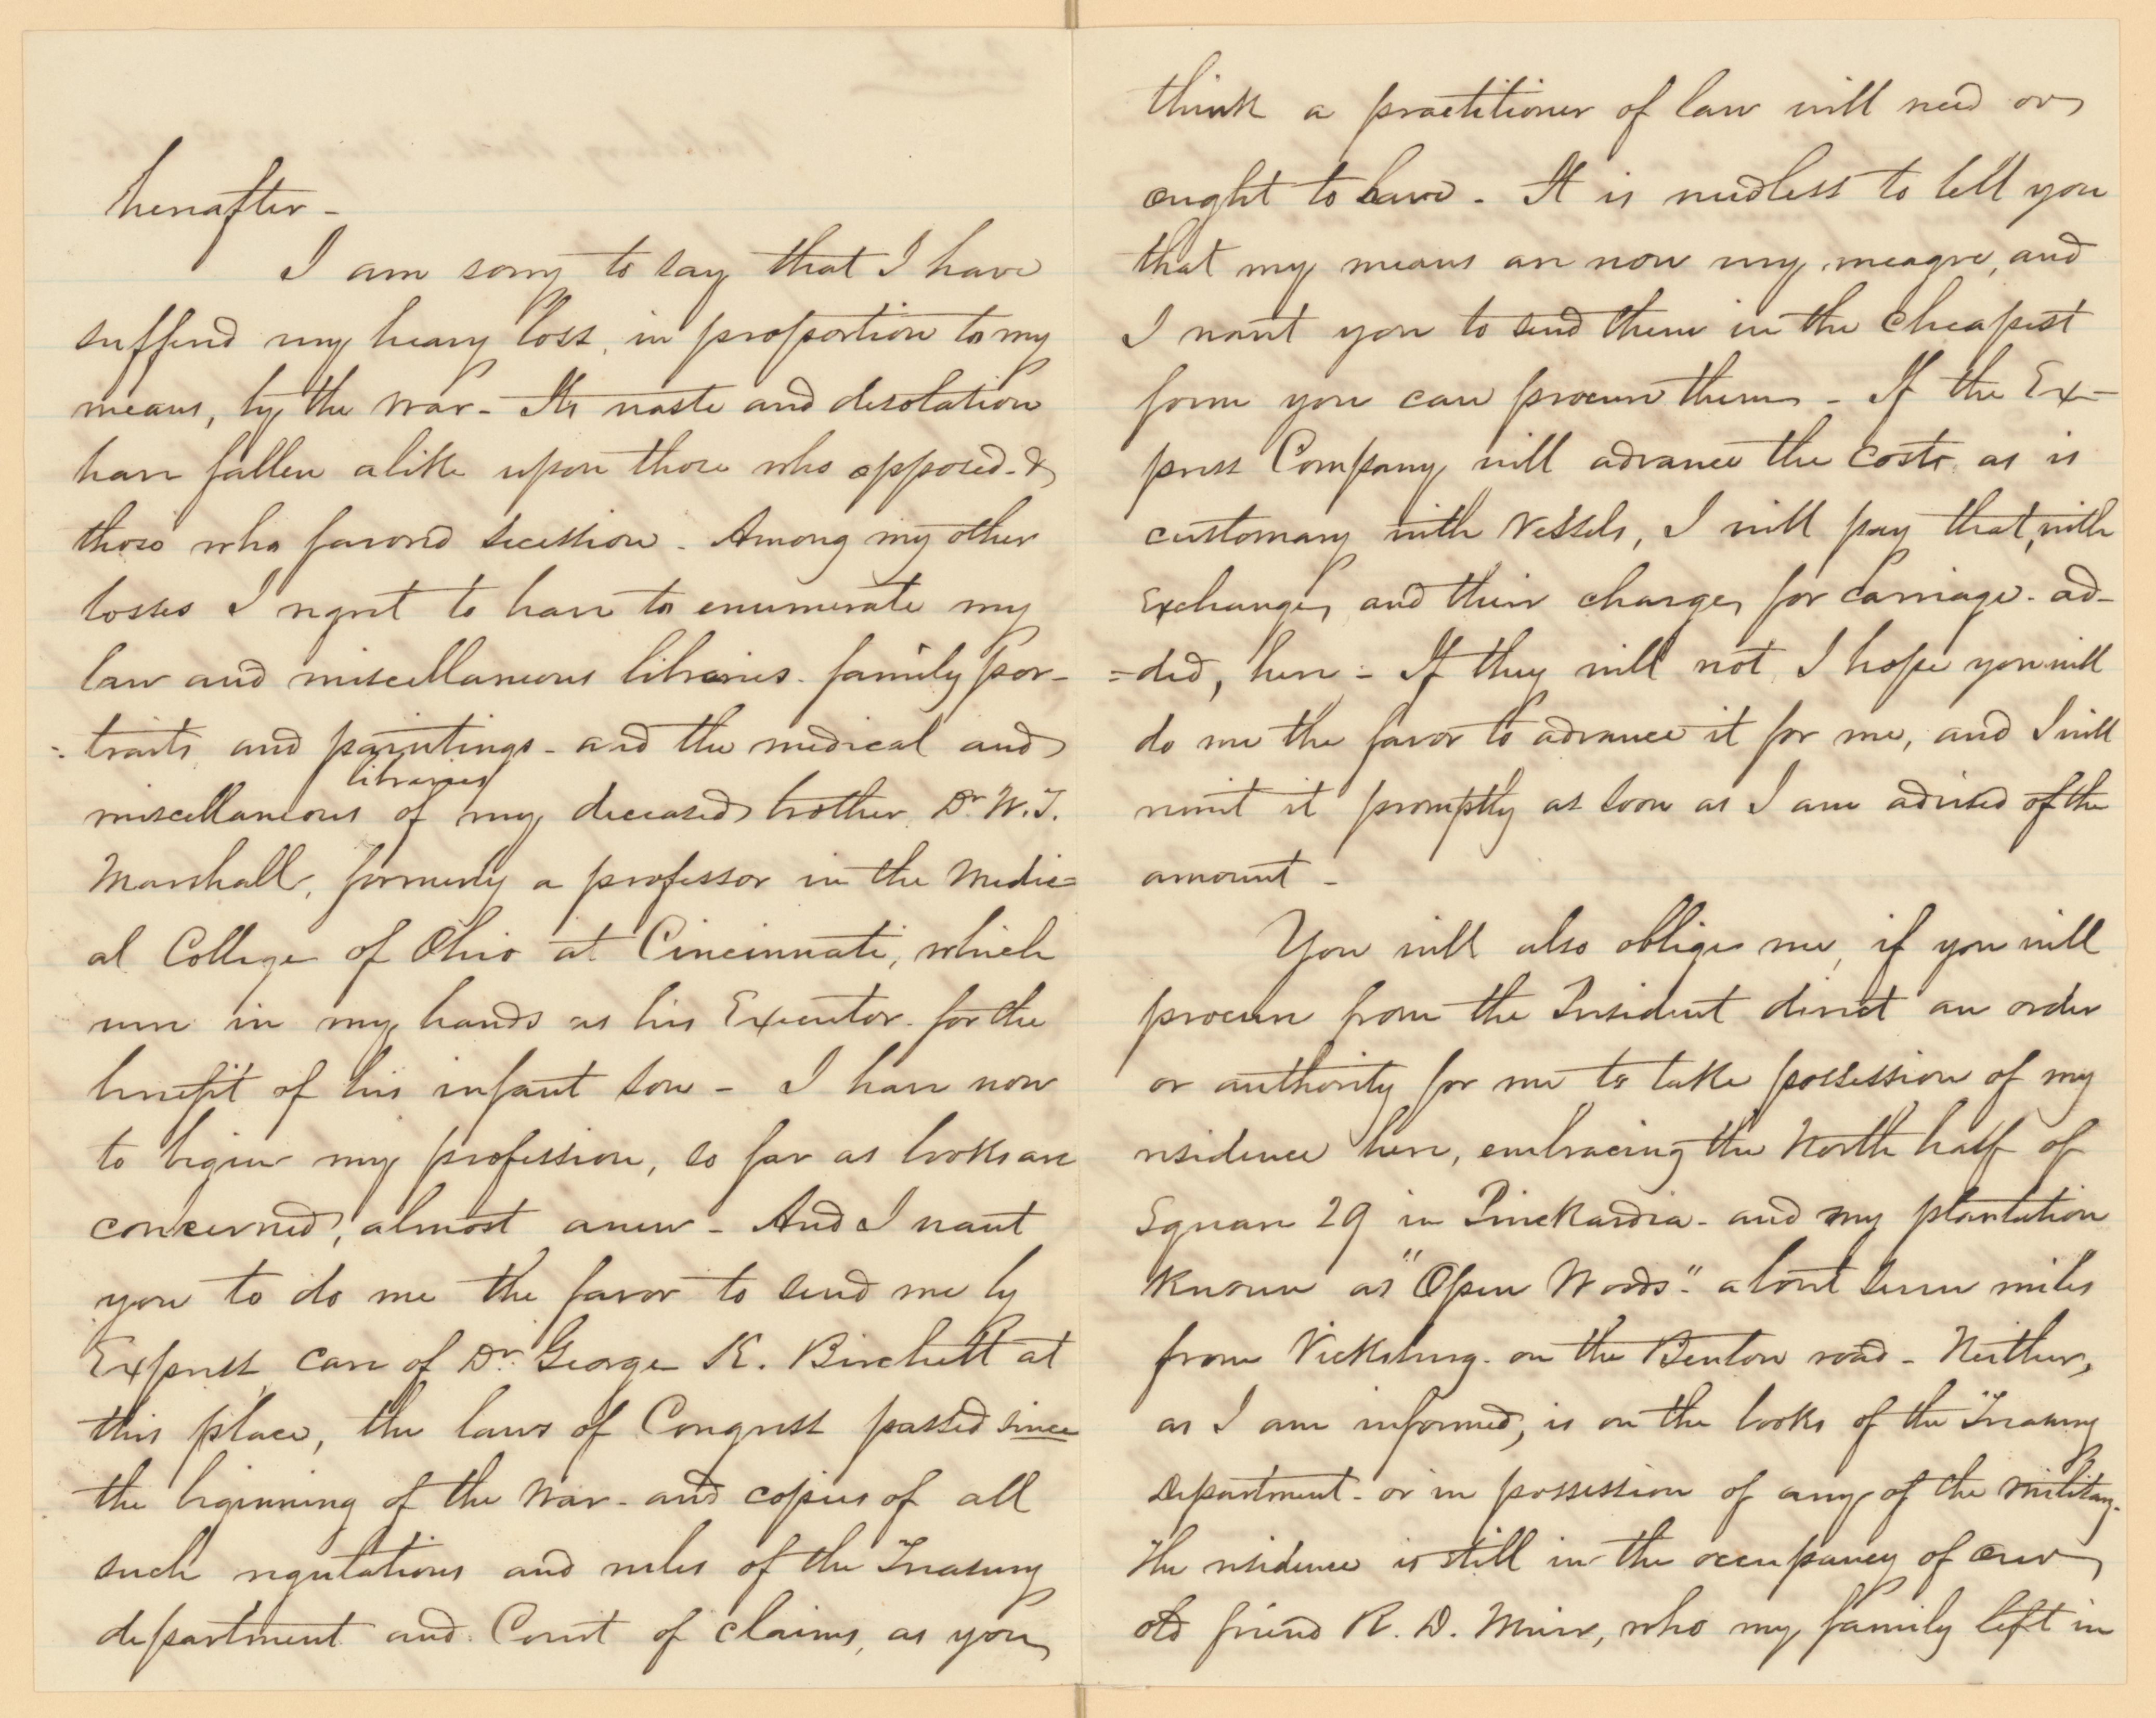 hereafter -
I am sorry to say that I have
suffered very heavy loss, in proportion to my
means, by the war - Its waste and desolation
have fallen alike upon those who opposed - &
those who favored secession - Among my other
losses I regret to have to enumerate my
law and miscellaneous libraries - family por-
-traits and paintings - and the medical and
libraries
miscellaneous of my deceased brother Dr. W. T.
Marshall, formerly a professor in the Medic=
al College of Ohio at Cincinnati, which
were in my hands as his Executor - for the
benefit of his infant son - I have now
to begin my profession, so far as books are
concerned, almost anew - And I want
you to do me the favor to send me by
Express care of Dr. George K. Birchett at
this place, the laws of Congress passed since
the beginning of the war - and copies of all
such regulations and rules of the Treasury
department and Court of claims, as you
think a practitioner of law will need or
ought to have - It is needless to tell you
that my means are now very meagre, and
I want you to send them in the cheapest
form you can procure them - If the Ex-
press Company will advance the costs as is
customary with Vessels, I will pay that, with
Exchange, and their charges for carriage - ad-
=ded, here - If they will not, I hope you will
do me the favor to advance it for me, and I will
remit it promptly as soon as I am advised of the
amount -
You will also oblige me, if you will
procure from the President direct an order
or authority for me to take possession of my
residence here, embracing the North half of
Square 29 in Pinckardia - and my plantation
known as "Open Woods" - about seven miles
from Vicksburg - on the Benton road - Neither,
as I am informed, is on the books of the Treasury
Department - or in possession of any of the military -
The residence is still in the occupancy of our
old friend R. D. Minor, who my family left in